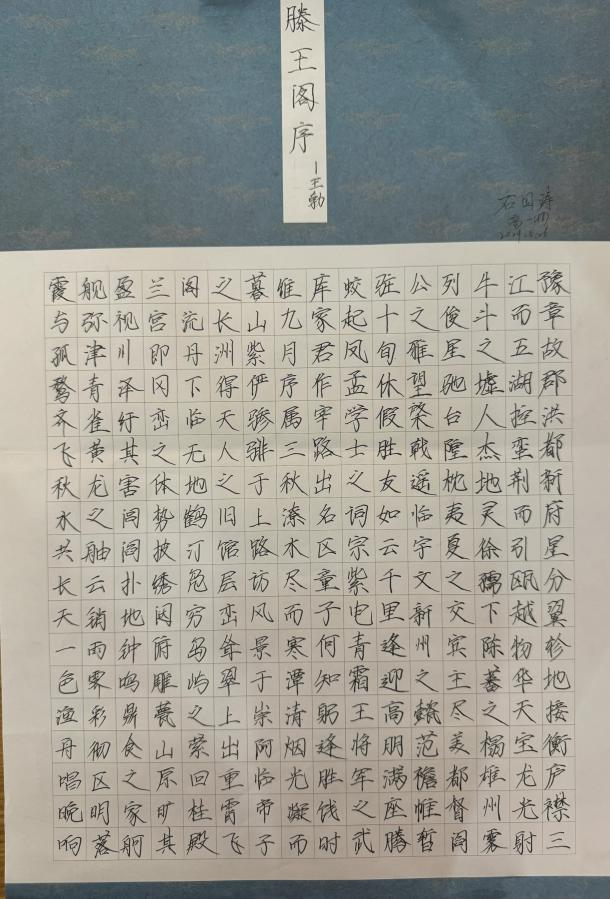 滕王阁序
—王勃
豫章故郡洪都新府星分翼轸地接衡庐襟三
江而五湖控蛮荆而引瓯越物华天宝龙光射
牛斗之墟人杰地灵徐孺下陈蕃之榻雄州雾
列俊星驰台隍枕夷夏之交宾主尽美都督阎
公之雅望棨戟遥临宇文新州之懿范襜帷暂
驻十旬休假胜友如云千里逢迎高朋满座腾
蛟起凤孟学士之词宗紫电青霜王将军之武
库家君作宰路出名区童子何知躬逢胜饯时
惟九月序属三秋潦水尽而寒潭清烟光凝而
暮山紫俨骖騑于上路访风景于崇阿临帝子
之长洲得天人之旧馆层峦耸翠上出重霄飞
阁流丹下临无地鹤汀凫穷岛屿之萦回桂殿
兰宫即冈峦之体势披绣闼俯雕甍山原旷其
盈视川泽纡其害闾阎扑地钟鸣鼎食之家舸
舰弥津青雀黄龙之舳云销雨霁彩彻区明落
霞与孤鹜齐飞秋水共长天一色渔舟唱晚响